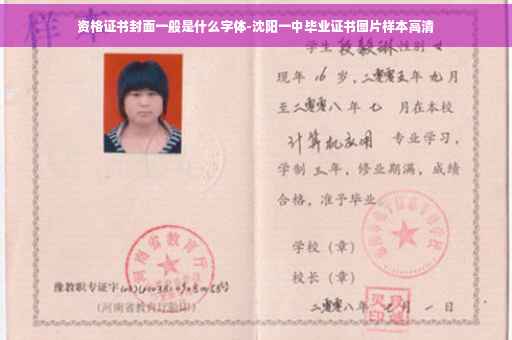 资格证书封面一般是什么字体-沈阳一中毕业证书图片样本高清
样本
学生 段毅琳 性别 女
现年 16 岁，二零零五年 九月
至二零零八年 七 月在本校
计算机应用 专业学习，
学制 三年，修业期满，成绩
合格，准予毕业
学校（章）
校长（章）
河南省教育厅
豫教职专证字
（河南省教育厅验印）
二零零八年 七 月 一 日